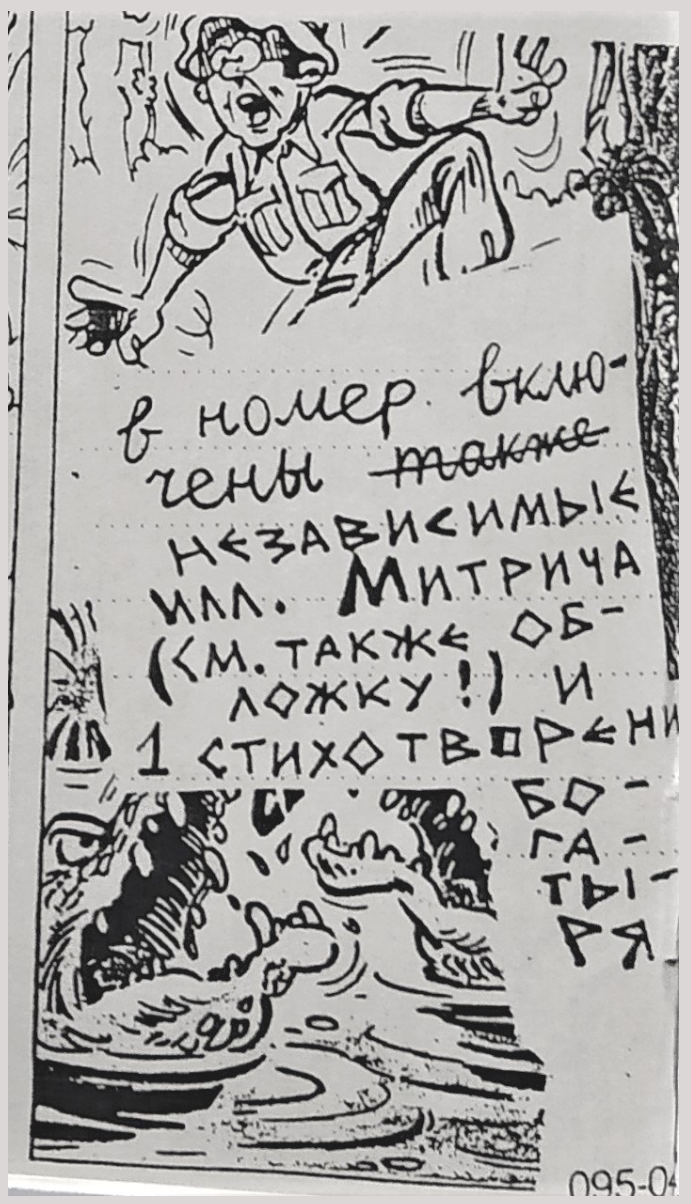 в номер вклю-
чены также
независимые
илл. Митрича
(см. также об-
ложку!) и
1 стихотворени
бо-
га-
ты-
ря
095-04